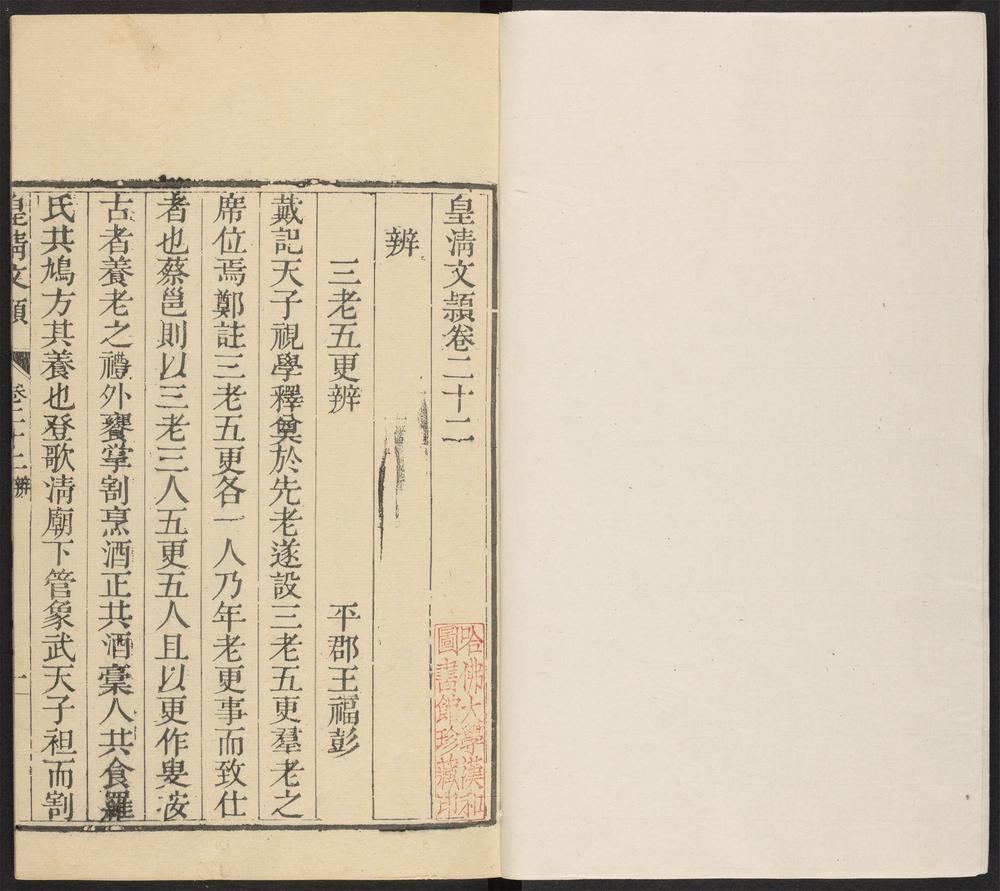 皇淸文頴卷二十二
哈佛大學漢和
圖書館珍藏印
辨
三老五更辨 平郡王福彭
戴記天子視學釋奠於先老遂設三老五更羣老之
席位焉鄭註三老五更各一人乃年老更事而致仕
者也蔡邕則以三老三人五更五人且以更作叟按
古者養老之禮外饔掌割烹酒正共酒槀人共食羅
氏共鳩方其養也登歌淸廟下管象武天子袒而割
皇淸文頴 卷二十二 辨 一